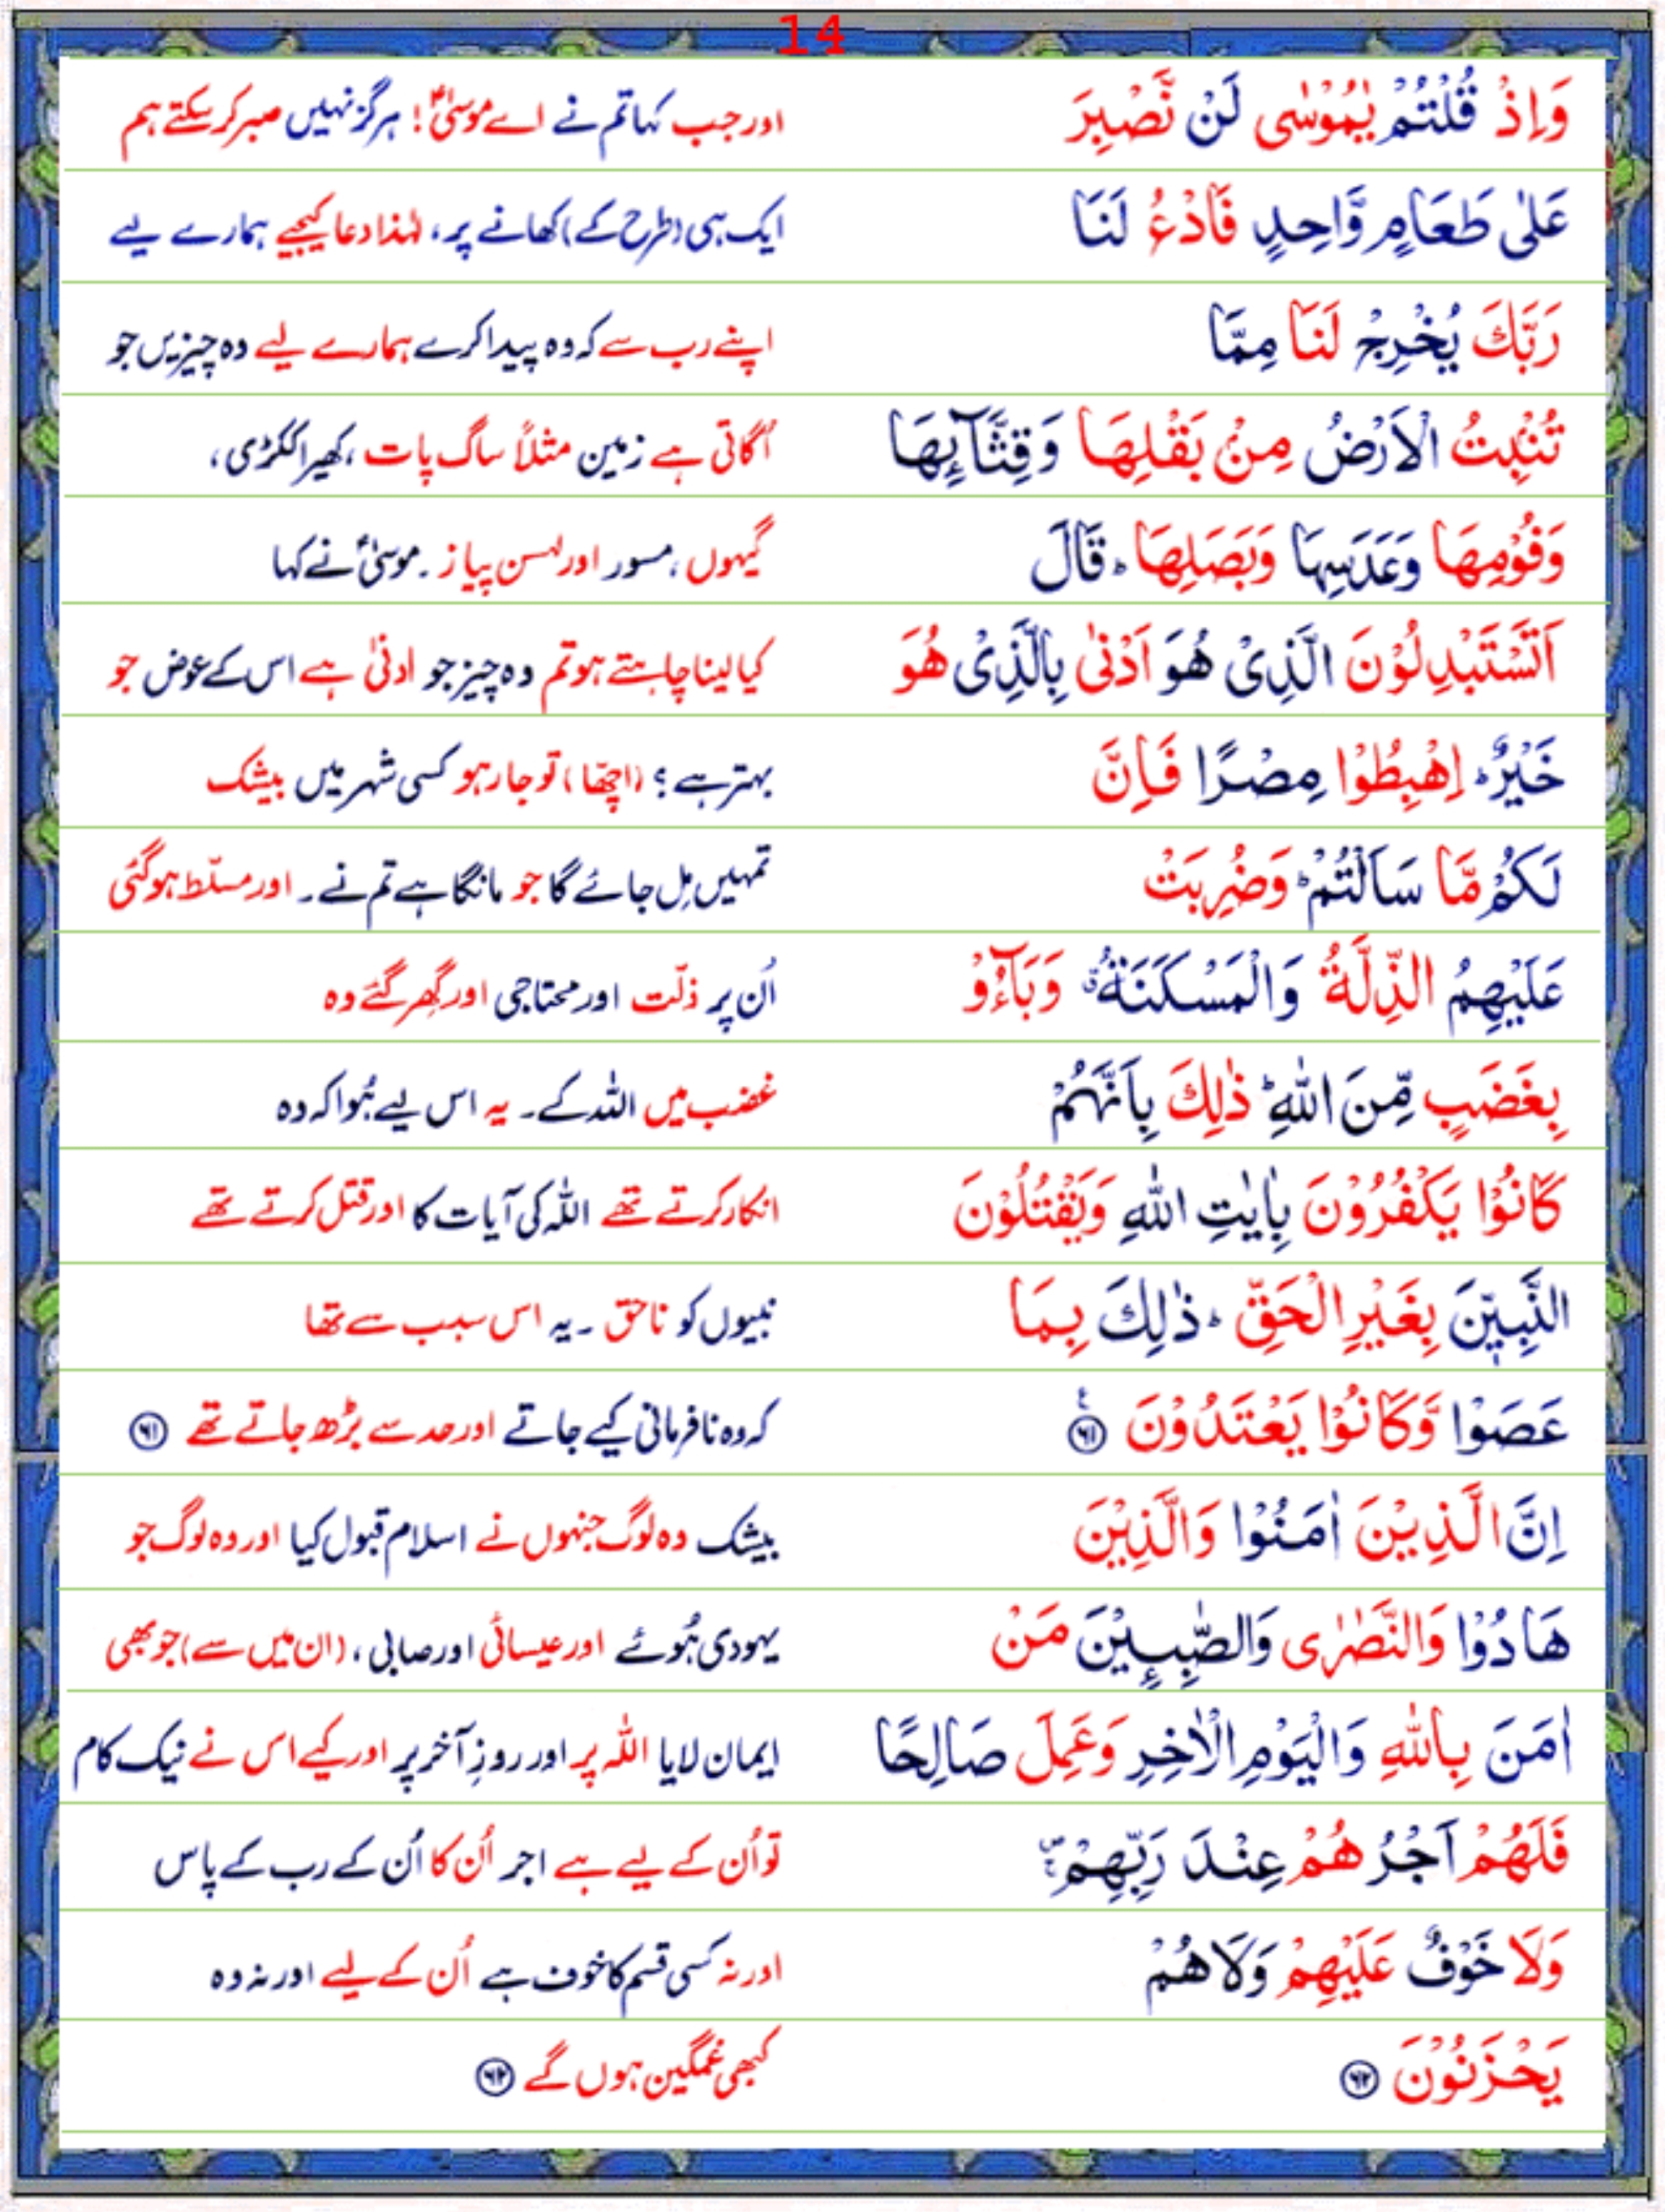 14
وَاِذْ قُلْتُمْ يٰمُوْسٰى لَنْ نَّصْبِرَ اور جب کہا تم نے اے موسیٰؑ! ہرگز نہیں صبر کر سکتے ہم
عَلٰى طَعَامٍ وَّاحِدٍ فَادْعُ لَنَا ایک ہی (طرح کے) کھانے پر، لہٰذا دعا کیجیے ہمارے لیے
رَبَّكَ يُخْرِجْ لَنَا مِمَّا اپنے رب سے کہ وہ پیدا کرے ہمارے لیے وہ چیزیں جو
تُنْۢبِتُ الْاَرْضُ مِنْۢ بَقْلِهَا وَقِثَّآئِهَا اُگاتی ہے زمین مثلاً ساگ پات، کھیرا ککڑی،
وَفُوْمِهَا وَعَدَسِهَا وَبَصَلِهَا ؕ قَالَ گیہوں، مسور اور لہسن پیاز۔ موسیٰؑ نے کہا
اَتَسْتَبْدِلُوْنَ الَّذِىْ هُوَ اَدْنٰى بِالَّذِىْ هُوَ کیا لینا چاہتے ہو تم وہ چیز جو ادنیٰ ہے اس کے عوض جو
خَيْرٌ ؕ اِهْبِطُوْا مِصْرًا فَاِنَّ بہتر ہے؟ (اچھا) تو جا رہو کسی شہر میں بیشک
لَكُمْ مَّا سَاَلْتُمْ ؕ وَضُرِبَتْ تمہیں مِل جائے گا جو مانگا ہے تم نے۔ اور مسلّط ہوگئی
عَلَيْهِمُ الذِّلَّةُ وَالْمَسْكَنَةُ ۗ وَبَآءُوْ اُن پر ذلّت اور محتاجی اور گھِر گئے وہ
بِغَضَبٍ مِّنَ اللّٰهِ ؕ ذٰلِكَ بِاَنَّهُمْ غضب میں اللہ کے۔ یہ اس لیے ہُوا کہ وہ
كَانُوْا يَكْفُرُوْنَ بِاٰيٰتِ اللّٰهِ وَيَقْتُلُوْنَ انکار کرتے تھے اللہ کی آیات کا اور قتل کرتے تھے
النَّبِيّٖنَ بِغَيْرِ الْحَقِّ ؕ ذٰلِكَ بِمَا نبیوں کو ناحق۔ یہ اس سبب سے تھا
عَصَوْا وَّكَانُوْا يَعْتَدُوْنَ ۶۱ ع کہ وہ نافرمانی کیے جاتے اور حد سے بڑھ جاتے تھے ۶۱
اِنَّ الَّذِيْنَ اٰمَنُوْا وَالَّذِيْنَ بیشک وہ لوگ جنہوں نے اسلام قبول کیا اور وہ لوگ جو
هَادُوْا وَالنَّصٰرٰى وَالصّٰبِـِٕيْنَ مَنْ یہودی ہُوئے اور عیسائی اور صابی، (ان میں سے) جو بھی
اٰمَنَ بِاللّٰهِ وَالْيَوْمِ الْاٰخِرِ وَعَمِلَ صَالِحًا ایمان لایا اللہ پر اور روزِ آخر پر اور کیے اس نے نیک کام
فَلَهُمْ اَجْرُهُمْ عِنْدَ رَبِّهِمْ ۚ تو اُن کے لیے ہے اجر اُن کا اُن کے رب کے پاس
وَلَا خَوْفٌ عَلَيْهِمْ وَلَا هُمْ اور نہ کسی قسم کا خوف ہے اُن کے لیے اور نہ وہ
يَحْزَنُوْنَ ۶۲ کبھی غمگین ہوں گے ۶۲